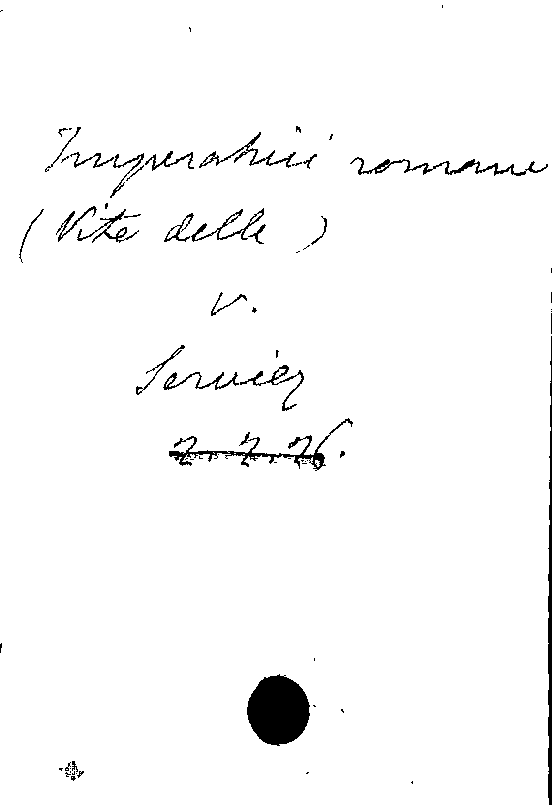 Imperatrici romane
(Vite delle)
v.
Serviez
2. 7. 26.